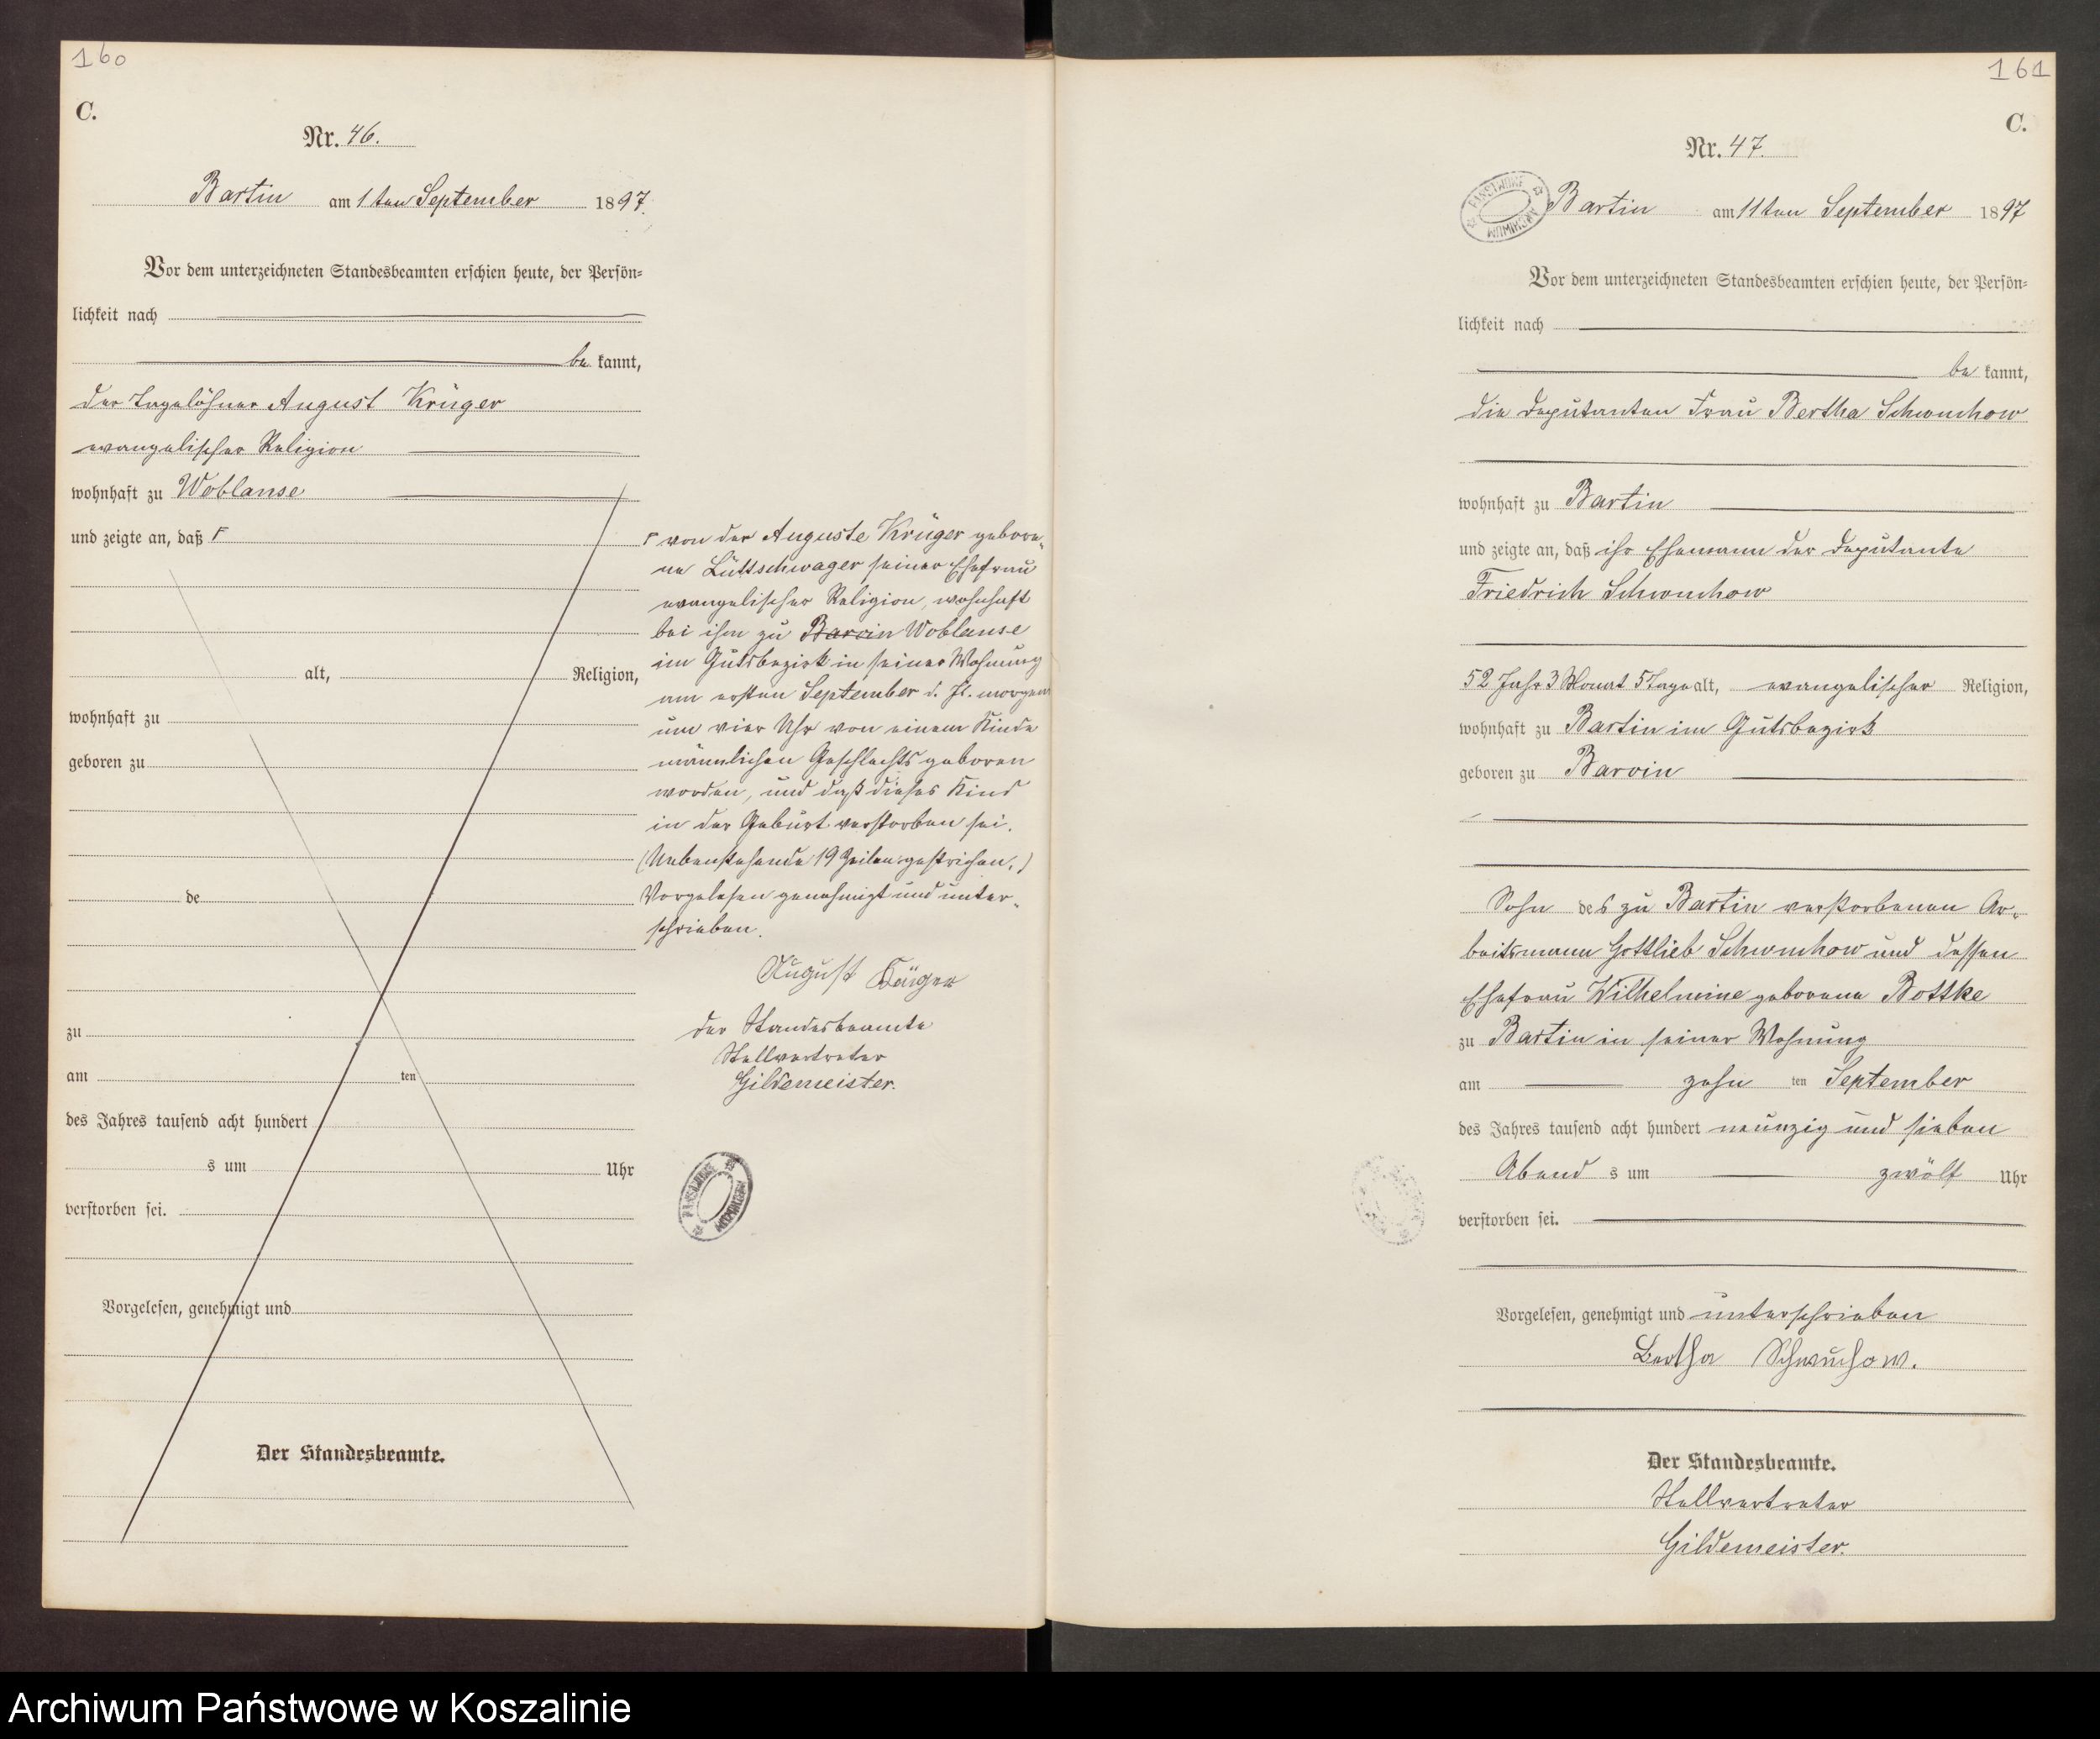 160
C.
Nr. 46.
Bartin am 1ten September 1897.
Vor dem unterzeichneten Standesbeamten erschien heute, der Persön-
lichkeit nach
be kannt,
der Tagelöhner August Krüger
evangelischer Religion
wohnhaft zu Woblanse
und zeigte an, daß Γ
alt, Religion,
wohnhaft zu
geboren zu
de
zu
am ten
des Jahres tausend acht hundert
s um Uhr
verstorben sei.
Vorgelesen, genehmigt und
Der Standesbeamte.
Γ von der Auguste Krüger gebore-
ne Lüttschwager seiner Ehefrau
evangelischer Religion, wohnhaft
bei ihm zu Barvin Woblanse
im Gutsbezirk in seiner Wohnung
am ersten September d. Js. morgens
um vier Uhr von einem Kinde
männlichen Geschlechts geboren
worden, und daß dieses Kind
in der Geburt verstorben sei.
(Nebenstehende 19 Zeilen gestrichen.)
Vorgelesen genehmigt und unter-
schrieben.
August Krüger
der Standesbeamte
Stellvertreter
Gildemeister.
161
C.
Nr. 47.
Bartin am 11ten September 1897
Vor dem unterzeichneten Standesbeamten erschien heute, der Persön-
lichkeit nach
be kannt,
die Deputanten Frau Bertha Schwuchow
wohnhaft zu Bartin
und zeigte an, daß ihr Ehemann der Deputante
Friedrich Schwuchow
52 Jahr 3 Monat 5 Tage alt, evangelischer Religion,
wohnhaft zu Bartin im Gutsbezirk
geboren zu Barvin
Sohn des zu Bartin verstorbenen Ar-
beitsmann Gottlieb Schwuchow und dessen
Ehefrau Wilhelmine geborene Bottke
zu Bartin in seiner Wohnung
am zehn ten September
des Jahres tausend acht hundert neunzig und sieben
Abend s um zwölf Uhr
verstorben sei.
Vorgelesen, genehmigt und unterschrieben
Bertha Schwuchow.
Der Standesbeamte.
Stellvertreter
Gildemeister.
Archiwum Państwowe w Koszalinie